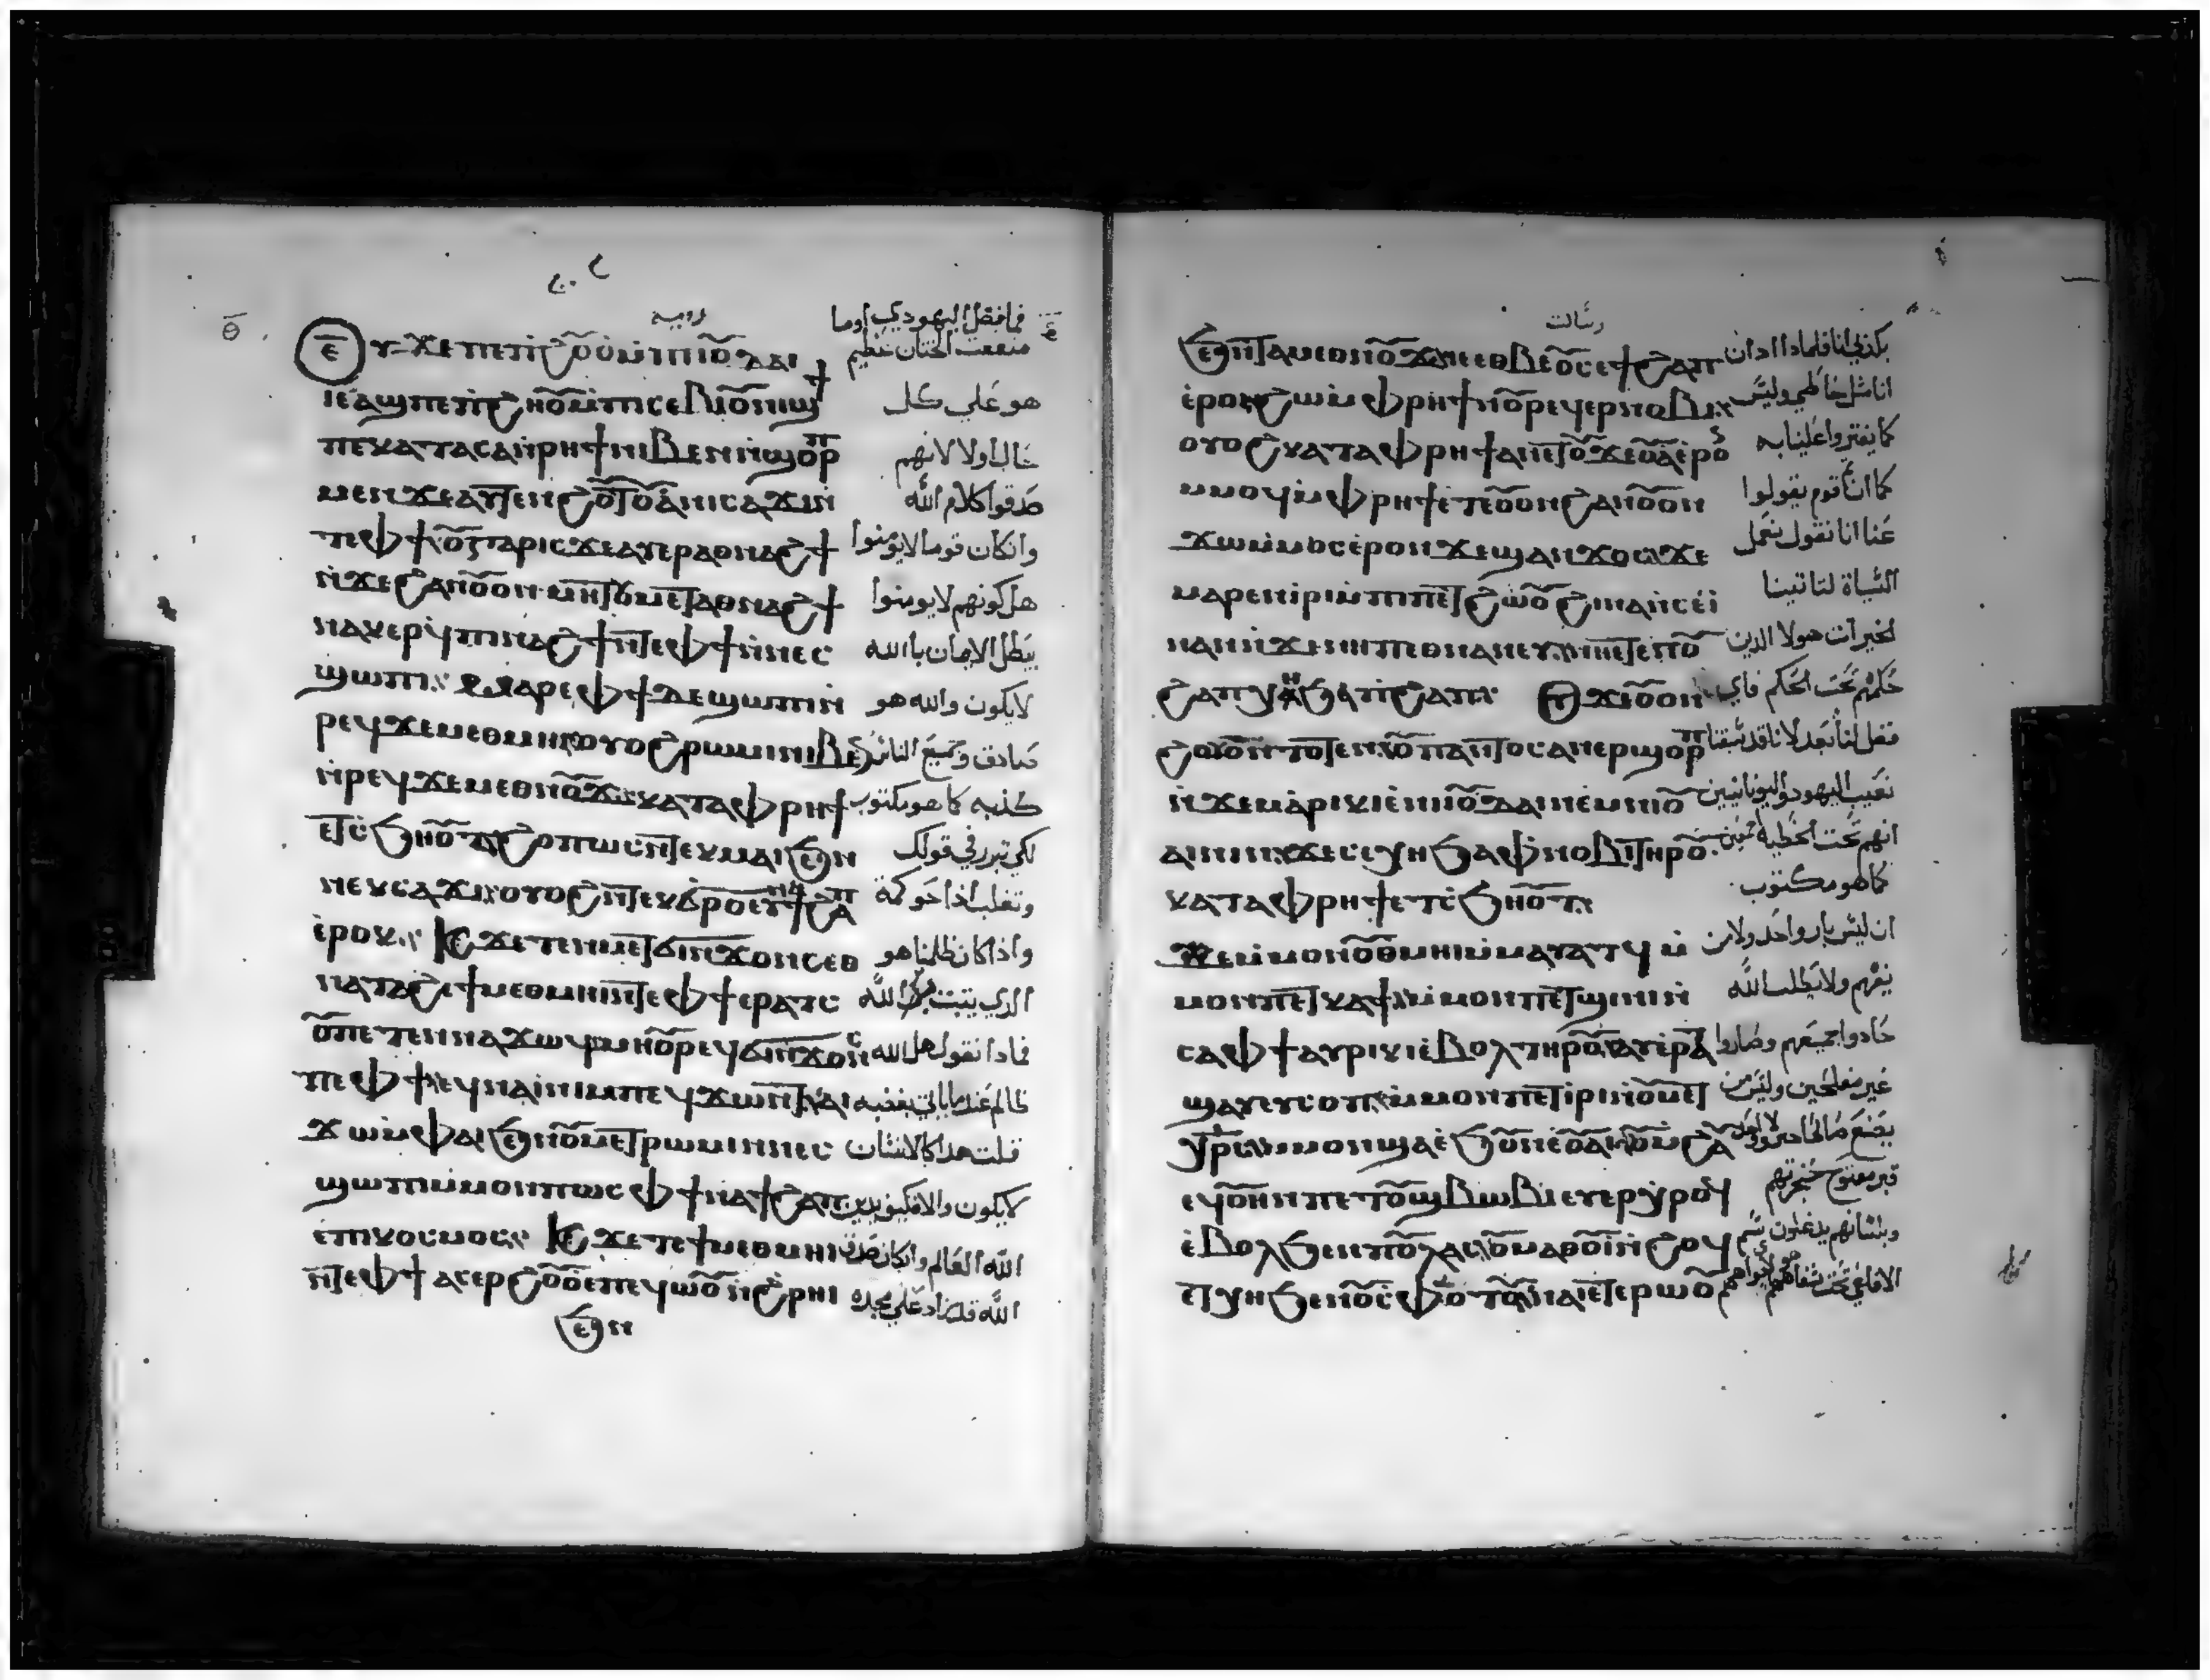 روميه
ⲉ̅ ⲩϫⲉⲡⲉⲡⲓϩⲟ̅ⲟ̀ⲙ̀ⲡⲓⲓⲟ̅ⲇⲁⲓ
ⲓⲉⲁϣⲡⲉⲡⲓϩⲏⲟ̅ⲙ̀ⲡⲓⲥⲉⲃⲓⲟ̅ⲛⲓϣϯ
ⲡⲉⲕⲁⲧⲁⲥⲁⲛ̀ⲣⲏϯⲛⲓⲃⲉⲛⲛ̀ϣⲟⲣⲡ
ⲙⲉⲛϫⲉⲁⲩⲧⲉⲛϩⲟ̅ⲧⲟ̅ⲁ̀ⲛⲓⲥⲁϫⲓⲛ̀
ⲧⲉⲫϯⲟ̅ⲅⲁⲣⲓⲥϫⲉⲁⲩⲉⲣⲁⲑⲛⲁϩϯ
ⲛ̀ϫⲉϩⲁⲛⲟ̅ⲟⲛⲙⲏⲧⲟ̅ⲙⲉⲧⲁⲑⲛⲁϩϯ
ⲛⲁⲕⲉⲣϥⲡⲛⲁϩϯⲛⲧⲉⲫϯⲛ̀ⲛⲉⲥ
ϣⲱⲡⲓ ⲙⲁⲣⲉⲫϯⲇⲉϣⲱⲡⲓⲛ̀
ⲣⲉϥϫⲉⲙⲉⲑⲙⲏⲓⲟⲩⲟϩⲣⲱⲙⲓⲛⲓⲃⲉ
ⲛ̀ⲣⲉϥϫⲉⲙⲉⲑⲛⲟ̅ϫⲕⲁⲧⲁⲫⲣⲏϯ
ⲉⲧⲥ̀ϧⲏⲟ̅ⲧϩⲟⲡⲱⲥⲛ̅ⲧⲉⲕⲙⲁⲓϧⲉⲛ
ⲛⲉⲕⲥⲁϫⲓⲟⲩⲟϩⲛ̅ⲧⲉⲕϭⲣⲟⲉⲩⲛⲁϯϩⲁⲡ
ⲉ̀ⲣⲟⲕ ⲓⲥϫⲉⲧⲉⲛⲙⲉⲧϭⲓⲛϫⲟⲛⲥⲉⲑ
ⲛⲁⲧⲁϩⲉϯⲙⲉⲑⲙⲏⲓⲛ̅ⲧⲉⲫϯⲉⲣⲁⲧⲥ
ⲟ̅ⲡⲉⲧⲉⲛⲛⲁϫⲱϥⲙⲏⲟ̅ⲣⲉϥϭⲓⲛϫⲟⲛⲥ
ⲡⲉⲫϯⲉϥⲛⲁⲓ̀ⲛⲓⲙⲡⲉϥϫⲱⲛ̅ⲧⲁⲓ
ϫⲱⲙ̀ⲫⲁⲓϧⲉⲛⲟ̅ⲙⲉⲧⲣⲱⲙⲓⲛⲛⲉⲥ
ϣⲱⲡⲓⲙ̀ⲙⲟⲛⲡⲱⲥⲫϯⲛⲁϯϩⲁⲡ
ⲉ̀ⲡⲓⲕⲟⲥⲙⲟⲥ ⲓⲥϫⲉⲧⲉϯⲙⲉⲑⲙⲏⲓ
ⲛ̅ⲧⲉⲫϯⲁⲥⲉⲣϩⲟ̅ⲟ̀ⲉⲡⲉϥⲱ̀ⲟ̅ⲛ̀ϩⲣⲏⲓ
ϧⲉⲛ
فما فضل اليهودي او ما
منفعت الختان عظيم
هو علي كل
حال اولا لانهم
صدقوا كلام الله
وان كان قوما لا يومنوا
هل كونهم لا يومنوا
يبطل الايمان بالله
لا يكون والله هو
صادق وجميع الناس
كذبه كما هو مكتوب
لكي تبرر في قولك
وتغلب اذا حوكمة
واذا كان ظلمنا هو
الذي يثبت بر الله
فماذا نقول هل الله
ظالم عندما ياتي بغضبه
قلت هذا كالانسان
لا يكون والا فكيف يدين
الله العالم وان كان صدق
الله قد زاد علي مجده
رسالت
ϧⲉⲛⲧⲁⲙⲉⲑⲛⲟ̅ϫⲓⲉⲑⲃⲉⲟ̅ⲥⲉϯϩⲁⲡ
ⲉ̀ⲣⲟⲓϩⲱⲙ̀ⲫⲣⲏϯⲛ̀ⲟ̅ⲣⲉϥⲉⲣⲛⲟⲃⲓ
ⲟⲩⲟϩⲕⲁⲧⲁⲫⲣⲏϯⲁⲛⲉⲧⲟ̅ϫⲉⲟ̅ⲁ̀ⲉ̀ⲣⲟ
ⲙⲙⲟϥⲙ̀ⲫⲣⲏϯⲉⲧⲉⲟ̅ⲟⲛϩⲁⲛⲟ̅ⲟⲛ
ϫⲱⲙ̀ⲙⲟⲥⲉ̀ⲣⲟⲛϫⲉϣⲁⲛϫⲟⲥϫⲉ
ⲙⲁⲣⲉⲛⲓ̀ⲣⲓⲙ̀ⲡⲓⲡⲉⲧϩⲱⲟ̅ϩⲓⲛⲁⲛ̀ⲥⲉⲓ̀
ⲛⲁⲛⲛ̀ϫⲉⲛⲓⲡⲉⲑⲛⲁⲛⲉⲩⲛⲏⲉⲧⲉⲡⲟ̅
ϩⲁⲡⲭⲏϧⲁⲡⲓϩⲁⲡ ⲋ̅ ϫⲉⲟ̅ⲟⲛ
ϩⲟ̅ⲟ̀ⲛ̀ⲧⲟⲧⲉⲛⲟ̅ⲡⲁⲛⲧⲟⲥⲁⲛⲉⲣϣⲟⲣⲡ
ⲛ̀ϫⲉⲙⲁⲣⲓⲕⲓⲉ̀ⲛⲓⲟ̅ⲇⲁⲓⲛⲉⲙⲛⲓⲟ̅
ⲁⲓⲛⲓⲛϫⲉⲥⲉⲭⲏϧⲁⲫⲛⲟⲃⲓⲧⲏⲣⲟ̅
ⲕⲁⲧⲁⲫⲣⲏϯⲉⲧⲥ̀ϧⲏⲟ̅ⲧ
ϫⲉⲙ̀ⲙⲟⲛⲟ̅ⲑⲙⲏⲓⲙ̀ⲙⲁⲩⲁⲧϥ ⲙ̀
ⲙⲟⲛⲡⲉⲧⲕⲁϯⲙ̀ⲙⲟⲛⲡⲉⲧϣⲓⲛⲓⲛ̀
ⲥⲁⲫϯⲁⲩⲣⲓⲕⲓⲉ̀ⲃⲟⲗⲧⲏⲣⲟ̅ⲁⲩⲉ̀ⲣⲁ
ϣⲁⲩⲉⲩⲥⲟⲡⲙ̀ⲙⲟⲛⲡⲉⲧⲓ̀ⲣⲓⲛ̀ⲟ̅ⲙⲉⲧ
ⲭ̅ⲣ̅ⲥⲙ̀ⲙⲟⲛϣⲁⲉ̀ϧⲟ̅ⲛⲉ̀ⲟ̅ⲁⲓⲟ̅ⲙ̀ϩⲁ
ⲉϥⲟ̅ⲏⲛⲡⲉⲧⲟ̅ϣⲃⲱⲃⲓⲉⲩⲉⲣⲭ̀ⲣⲟϥ
ⲉ̀ⲃⲟⲗϧⲉⲛⲡⲟ̅ⲗⲁⲥⲟ̅ⲙⲁⲑⲟ̅ⲓ̀ⲛ̀ϩⲟϥ
ⲉⲧⲭⲏϧⲉⲛⲟ̅ⲥⲫⲟⲧⲟ̅ⲛⲁⲓⲉⲧⲉⲣⲱⲟ̅
بكذبي انا فلماذا ادان
انا مثل خاطي وليس
كما يفتروا علينا به
كما ان قوم يقولوا
عنا انا نقول نعمل
السياة لتاتينا
الخيرات هولا الدين
حكمهم تحت الحكم فاي
فضل لنا بعد لانا قد سبقنا
نعيب اليهود واليونانيين
انهم تحت الخطيه اجمعين
كما هو مكتوب
ان ليس بار واحد ولا من
يفهم ولا يطلب الله
حادوا جميعهم وصاروا
غير مفلحين وليس من
يصنع صالحا
قبر مفتوح حنجرتهم
وبلسانهم يدغلون سم
الافاعي تحت شفاههم